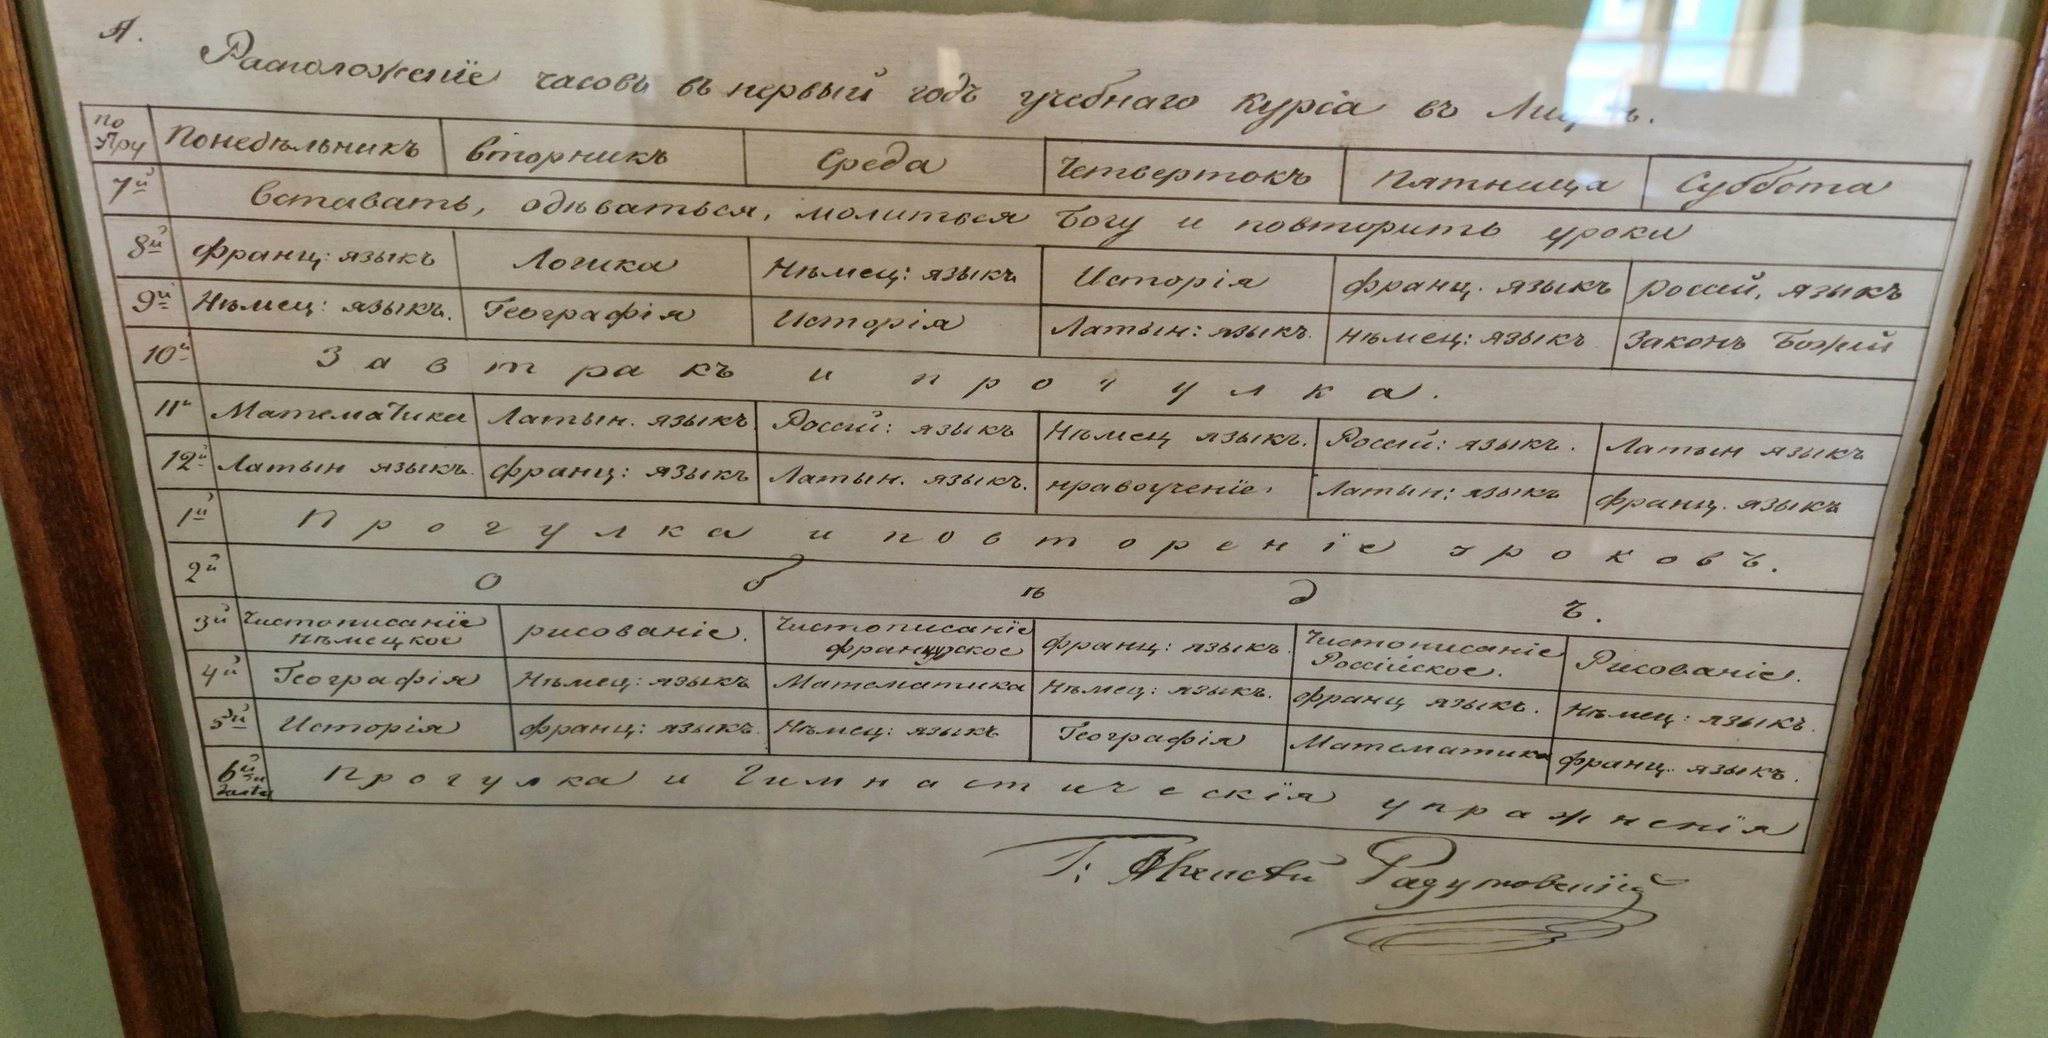 А.
Расположенїе часовъ въ первый годъ учебнаго курса въ
по Утру Понедѣльникъ Вторникъ Среда Четвертокъ Пятница Суббота
7й Вставать, одѣваться, молиться Богу и повторить уроки
8й Франц: языкъ Логика Нѣмец: языкъ Исторія Франц. языкъ Россій. языкъ
9й Нѣмец: языкъ. Географія Исторія Латын: языкъ. Нѣмец: языкъ Законъ Божій
10й Завтракъ и прогулка.
11й Математика Латын. языкъ Россій: языкъ Нѣмец языкъ. Россій: языкъ. Латын языкъ
12й Латын языкъ. Франц: языкъ Латын. языкъ. Нравоученіе. Латын: языкъ Франц. языкъ
1й Прогулка и повтореніе уроковъ.
2й Обѣдъ.
3й Чистописаніе нѣмецкое Рисованіе. Чистописаніе французское Франц: языкъ. Чистописаніе Россійское. Рисованіе.
4й Географія Нѣмец: языкъ Математика Нѣмец: языкъ. Франц языкъ. Нѣмец: языкъ.
5й Исторія Франц: языкъ. Нѣмец: языкъ Географія Математика Франц. языкъ.
6й Прогулка и Гимнастическїя упражненїя
Г: